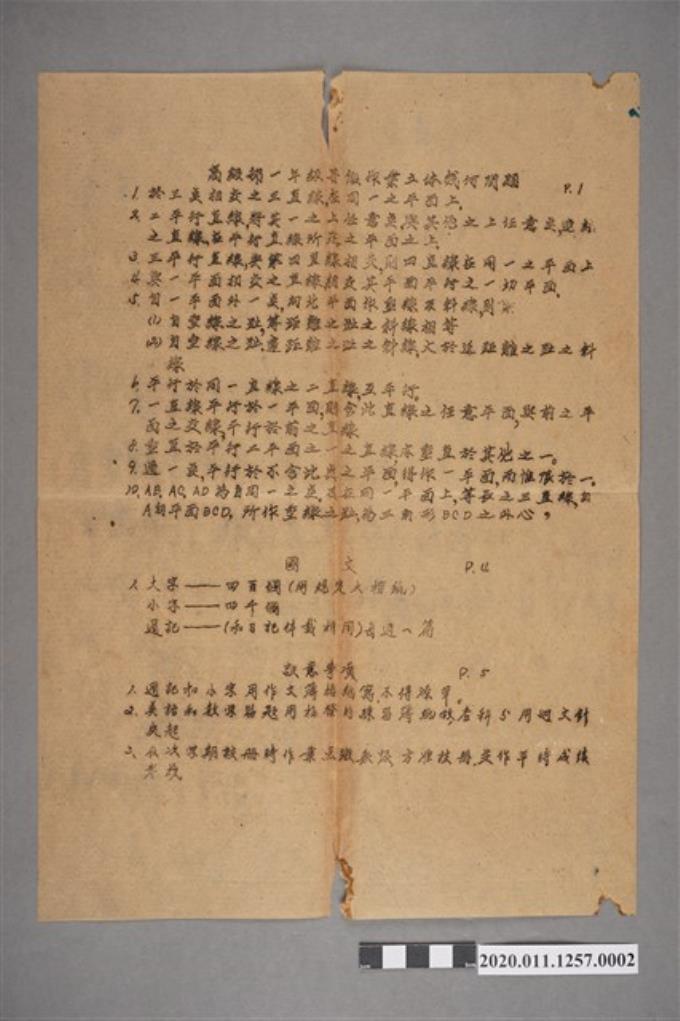 高級部一年級寒假作業立体幾何問題 P.1
1. 於三點相交之三直線,在同一之平面上.
2. 二平行直線,將其一之上任意點,與其他之上任意點,連結
之直線,在平行直線所在之平面之上.
3. 三平行直線,與第四直線相交,則四直線在同一之平面上
4. 與一平面相交之直線,相交其平面平行之一切平面.
5. 自一平面外一點,向此平面作垂線及斜線,則
(1) 自垂線之趾,等距離之趾之斜線相等
(2) 自垂線之趾,遠距離之趾之斜線,大於近距離之趾之斜
線
6. 平行於同一直線之二直線,互平行.
7. 一直線平行於一平面,則含此直線之任意平面,與前之平
面之交線,平行於前之直線
8. 垂直於平行二平面之一之直線亦垂直於其他之一.
9. 過一點,平行於不含此點之平面得作一平面,而惟限於一.
10. AB, AC, AD 為自同一之點,在同一平面上,等長之三直線,自
A向平面BCD,所作垂線之趾,為三角形BCD之外心,
國 文 P.4
1. 大字——四百個(用規定大楷紙)
小字——四千個
週記——(和日記併載料同)每週一篇
注意事項 P.5
1. 週記和小字用作文簿抬頭寫不得潦草.
2. 英語和數學習題用練習簿 各科 用迴文針
夾起
3. 在次學期校冊時作業呈繳 方准校冊,並作平時成績
考攷
2020.011.1257.0002